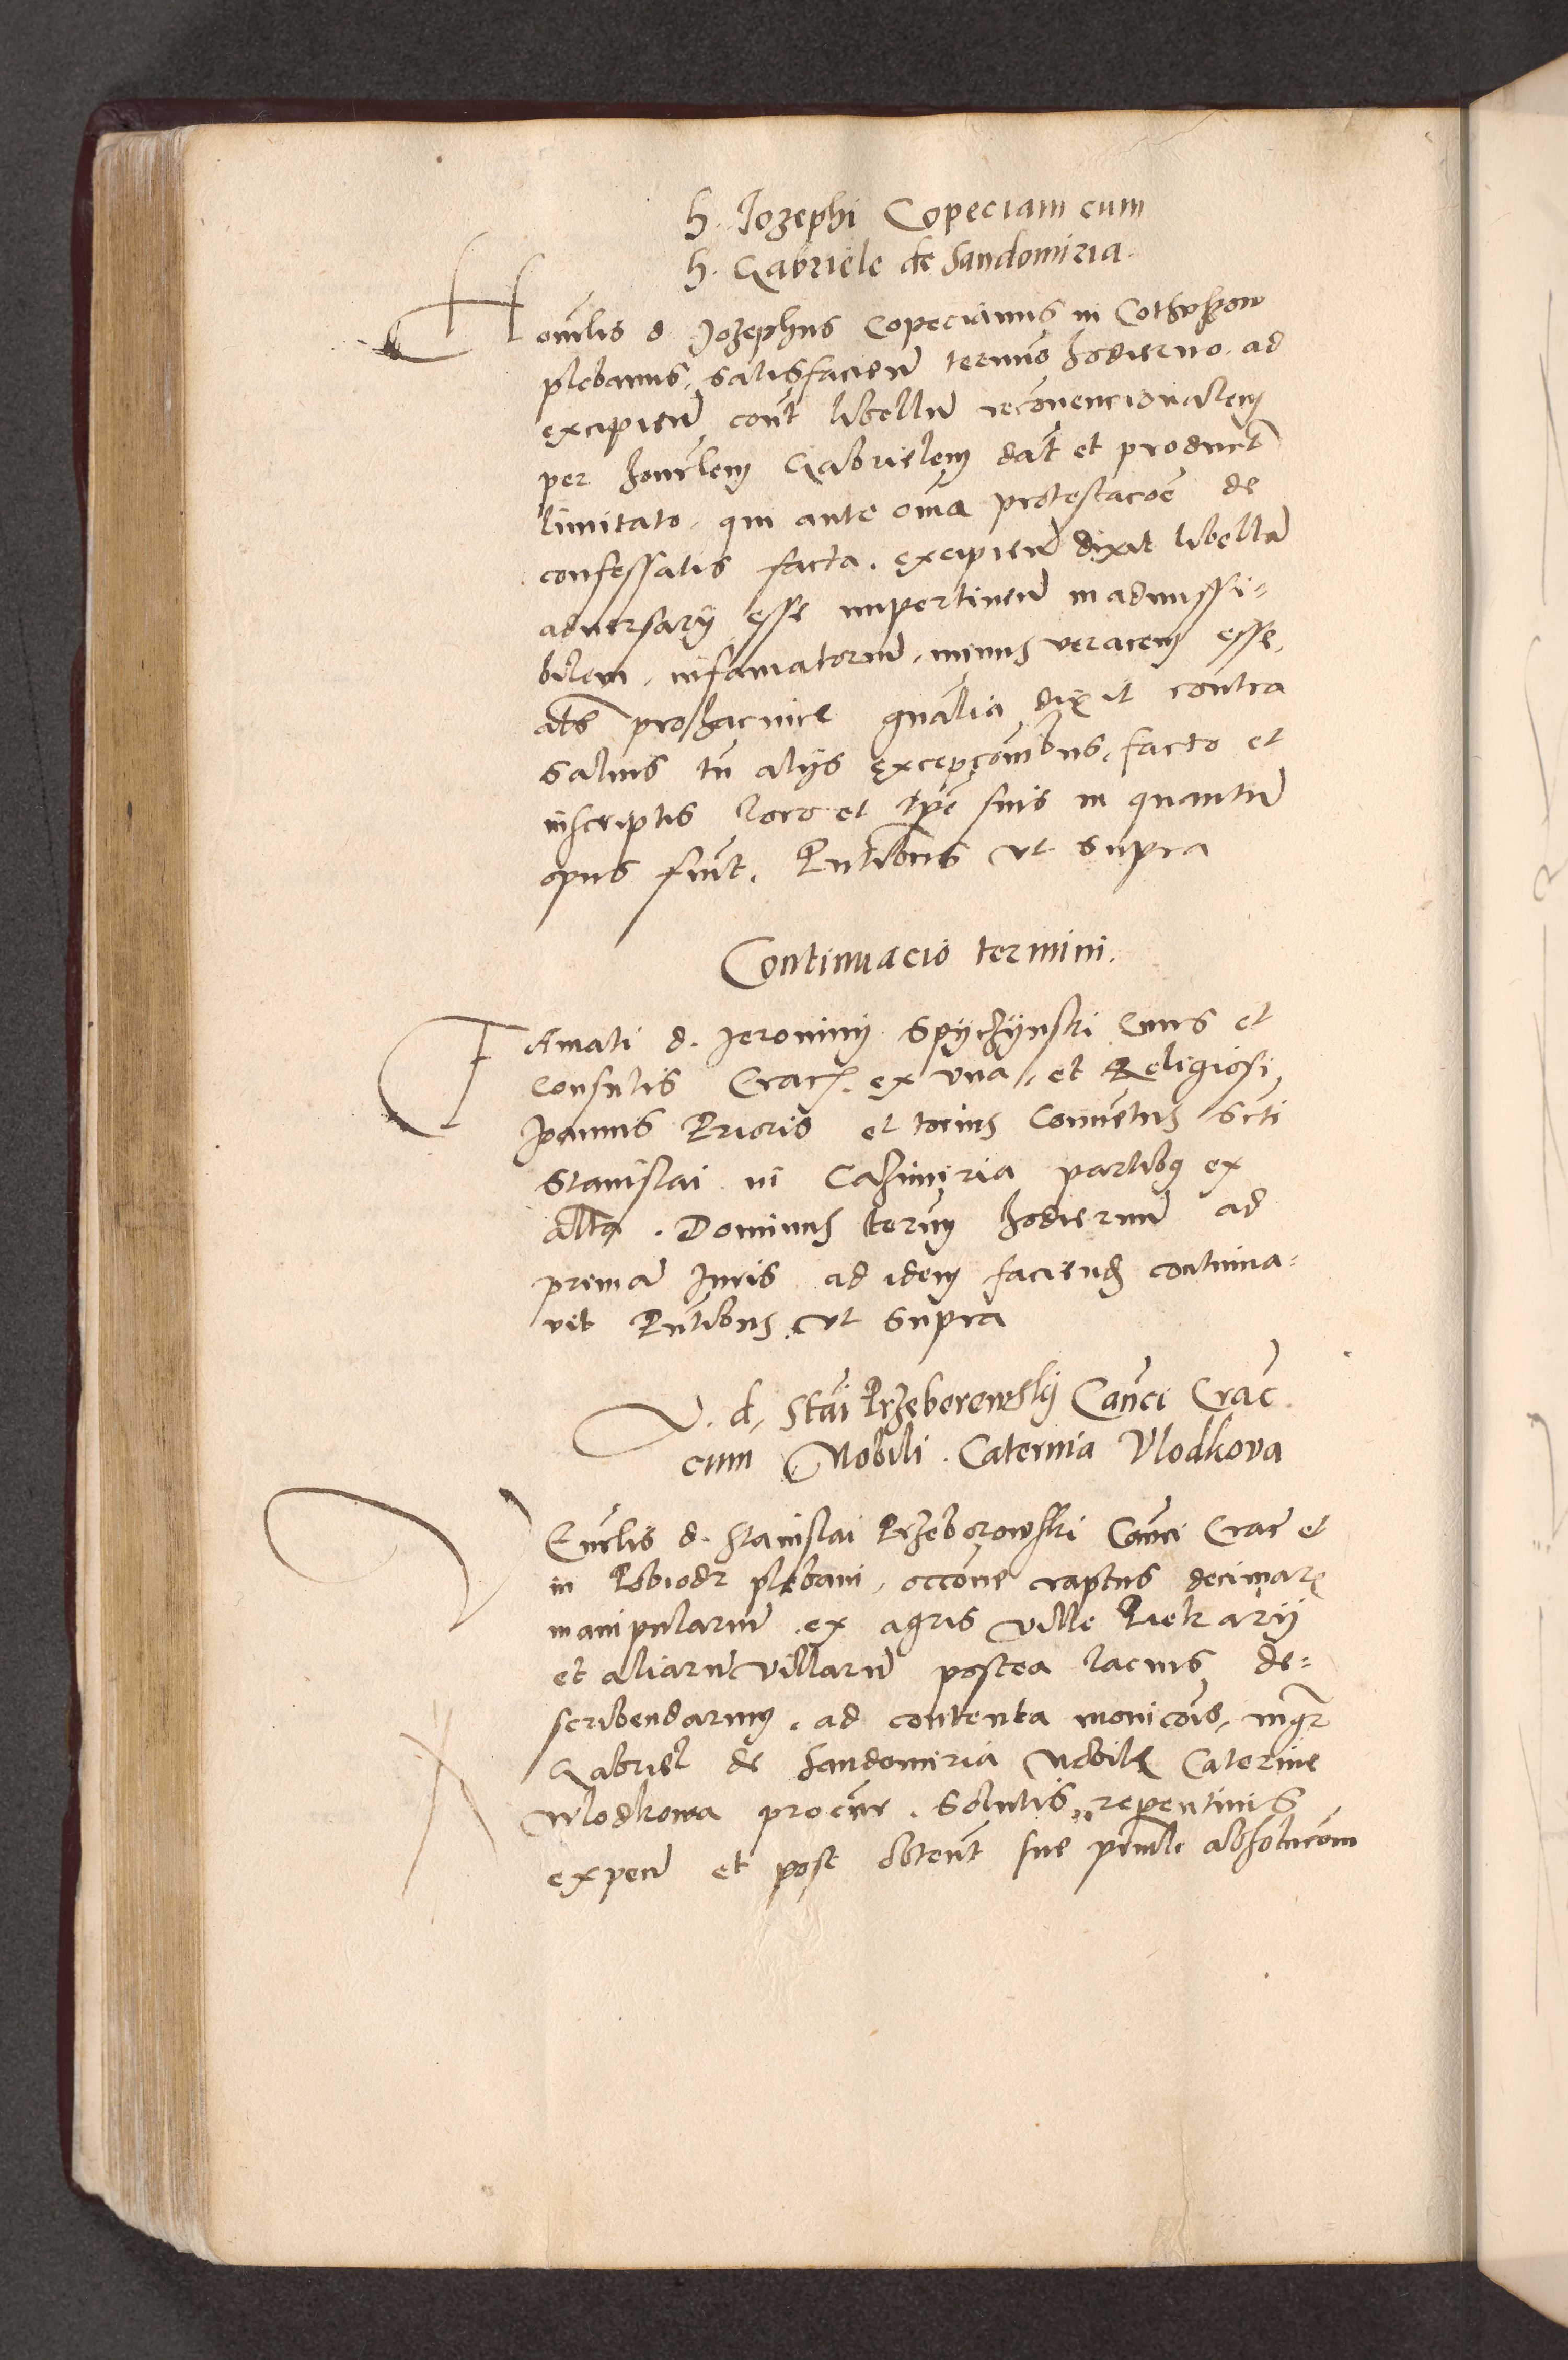 h. Jozephi Copeciam cum
h. Gabriele de Sandomiria.
Honẽlis d. Jozephus Copecianus in
plebanus, satisfacien̄ termīo hodierno ad
excipien̄ cont̄ libellū recōvencionalem
per honẽlem Gabrielem dat̄ et product̄
limitato. qui ante om̄a protestacoẽ de
confessatis facta. excipien̄ dixit libellū
adversarij esse impertinen̄ inadmissi=
bilem, infamatoriū, minus veracem esse,
at̄s prosacnire gnālia dixit contra
salvis tn̄ alijs excepcōnibus, facto et
inscriptis loco et tpē suis in quantū
opus fuīt. Pn̄tibus ut supra
Continuacio termini.
Famati d. Jeronimi Spyczynski Civis et
Consulis Crac. ex una, et Religiosi
Joannis Prioris et tocius Conventus Scti
Stanislai in Casimiria partibꝫ ex
alta. Dominus term̄ hodiernū ad
primā Juris ad idem faciend̄ continua=
vit Pn̄tibus ut supra
V. d. Stāi Przeborewsky Canc̄i Crac̄.
cum Nobili Caterina Vlodkova
Venẽlis d. Stanislai Przeborowski Canc̄i Crac̄ et
in plebani, occōne raptus decimarꝫ
manipulariū ex agris ville Piekarij
et aliarū villarū postea lacius de=
scribendarum. ad contenta monicōis, mgr̄
Gabriel de Sandomiria Nobilꝫ Caterine
Wlodkowa procūr. Solutis, repentinis
expen̄ et post obtent̄ sue prīnli absolucōm